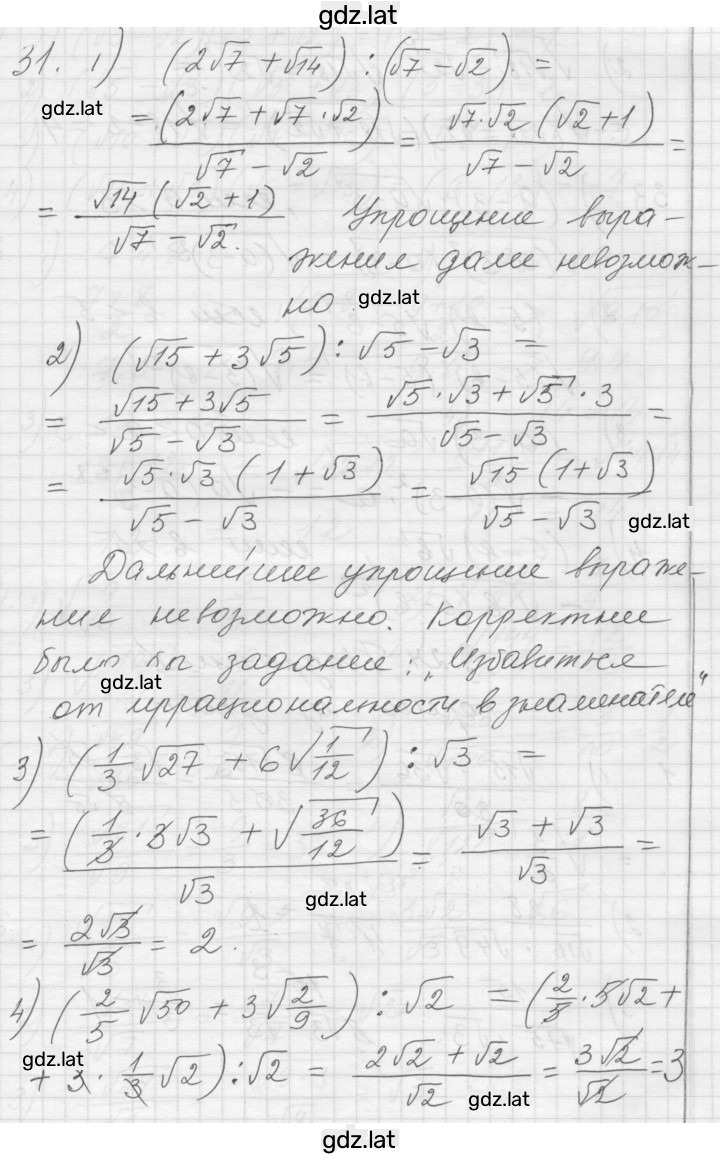 gdz.lat
31. 1) (2√7 + √14) : (√7 − √2) =
gdz.lat
= (2√7 + √7 · √2) / (√7 − √2) = √7 · √2 (√2 + 1) / (√7 − √2) =
= √14 (√2 + 1) / (√7 − √2). Упрощение выра-
жения далее невозмож-
но.
gdz.lat
2) (√15 + 3√5) : √5 − √3 =
= (√15 + 3√5) / (√5 − √3) = (√5 · √3 + √5 · 3) / (√5 − √3) =
= √5 · √3 (1 + √3) / (√5 − √3) = √15 (1 + √3) / (√5 − √3)
gdz.lat
Дальнейшее упрощение выраже-
ние невозможно. Корректнее
было бы задание: „Избавиться
gdz.lat
от иррациональности в знаменателе"
3) (1/3 √27 + 6√(1/12)) : √3 =
= (1/3 · 3√3 + √(36/12)) / √3 = (√3 + √3) / √3 =
gdz.lat
= 2√3 / √3 = 2.
4) (2/5 √50 + 3√(2/9)) : √2 = (2/5 · 5√2 +
gdz.lat
+ 3 · 1/3 √2) : √2 = (2√2 + √2) / √2 = 3√2 / √2 = 3
gdz.lat
gdz.lat